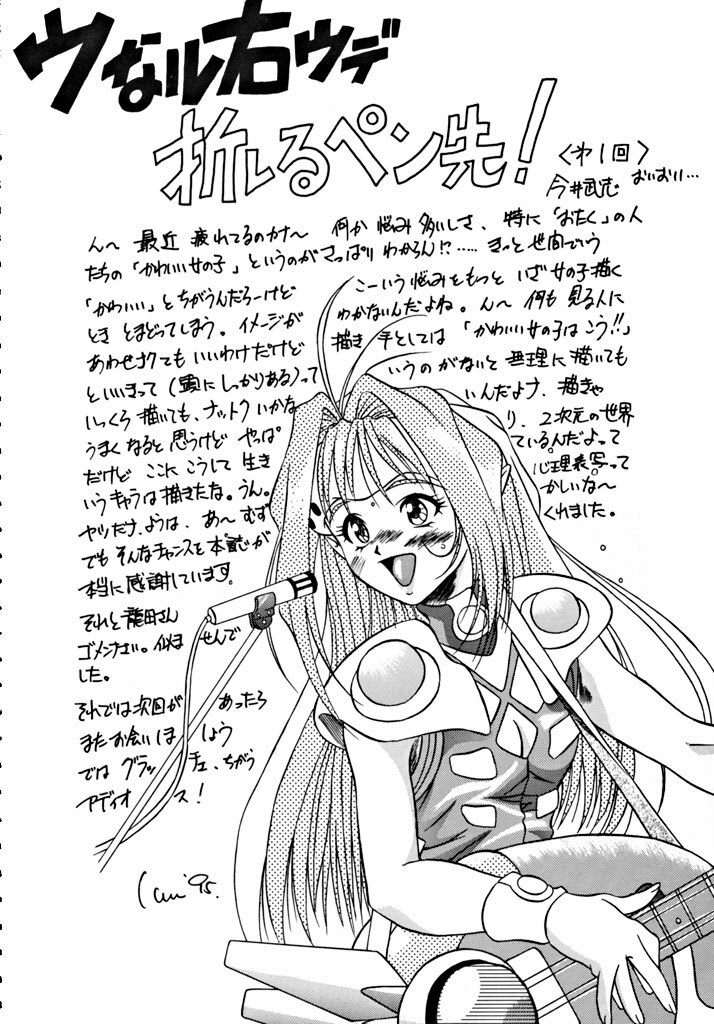 ウなル右ウデ
折しるペン先!
〈オ1回〉
今井武志 おいおい…
ん〜 最近 疲れてるのカナ〜 何か 悩み 多いしさ、特に「おたく」の人
たちの「かわいい女の子」というのが さっぱり わからん!?…… きっと 世間でいう
「かわいい」とちがうんだろーけど こーいう悩みをもっと いざ女の子描く
とき とまどってしまう。イメージが わかないんだよね。ん〜 何も 見る人に
あわせなくても いいわけだけど 描き 手としては 「かわいい女の子はこう!!」
といいきって(頭に しっかりある)って いうの がないと 無理に描いても
いっくら 描いても、ナットク いかな いんだよナ、描きゃ
うまく なると 思うけど やっぱ り、2次元の世界
だけど ここに こうして 生き ているんだよって
いうキャラは 描きたな。うん。 心理表写って
ヤツだけ、ようは、あ〜 むず かしいな〜
でも そんなチャンスを 本誌が くれました。
本当に 感謝しています。
それと 龍田さん
ゴメンなさい。似ま せんで
した。
それでは 次回が あったら
また お会い しま しょう
では グラッ チェ、ちがう
アディオ ス!
Imai '95.